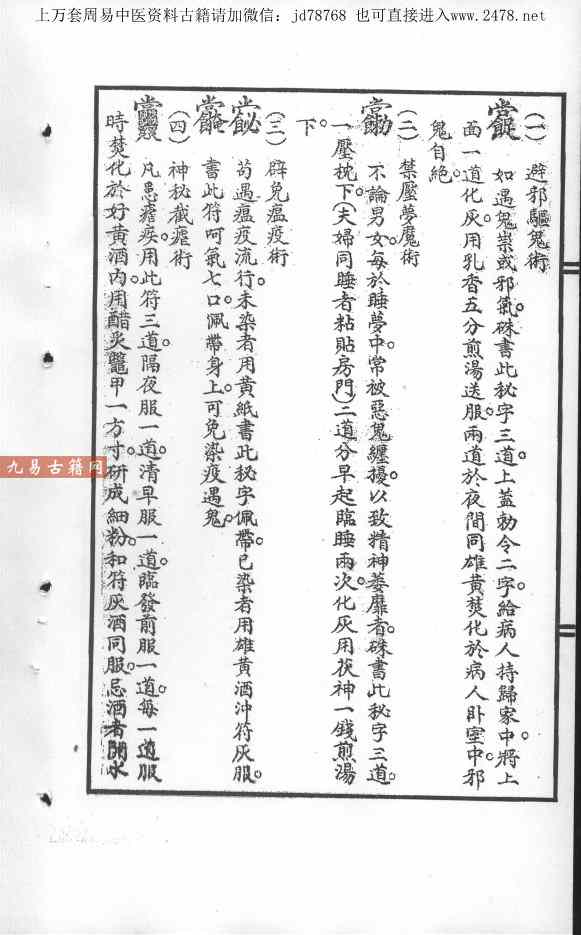 上万套周易中医资料古籍请加微信：jd78768 也可直接进入www.2478.net
(一) 避邪驅鬼術
如遇鬼祟或邪氣。硃書此秘字三道。上蓋勅令二字。給病人持歸家中。將上
面一道化灰。用乳香五分煎湯送服。兩道於夜間同雄黃焚化於病人卧室中。邪
鬼自絕。
(二) 禁壓夢魔術
不論男女。每於睡夢中。常被惡鬼纏擾。以致精神萎靡者。硃書此秘字三道。
一壓枕下。(夫婦同睡者粘貼房門)二道分早起臨睡兩次。化灰用茯神一錢煎湯
下。
(三) 辟免瘟疫術
茍遇瘟疫流行。未染者用黃紙書此秘字佩帶。已染者用雄黃酒沖符灰服。
書此符呵氣七口。佩帶身上。可免染疫遇鬼。
(四) 神秘截瘧術
凡患瘧疾。用此符三道。隔夜服一道。清早服一道。臨發前服一道。每一道服
時焚化於好黃酒內。用醋炙鼈甲一方寸。研成細粉。和符灰酒同服。忌酒者開水
九易古籍网